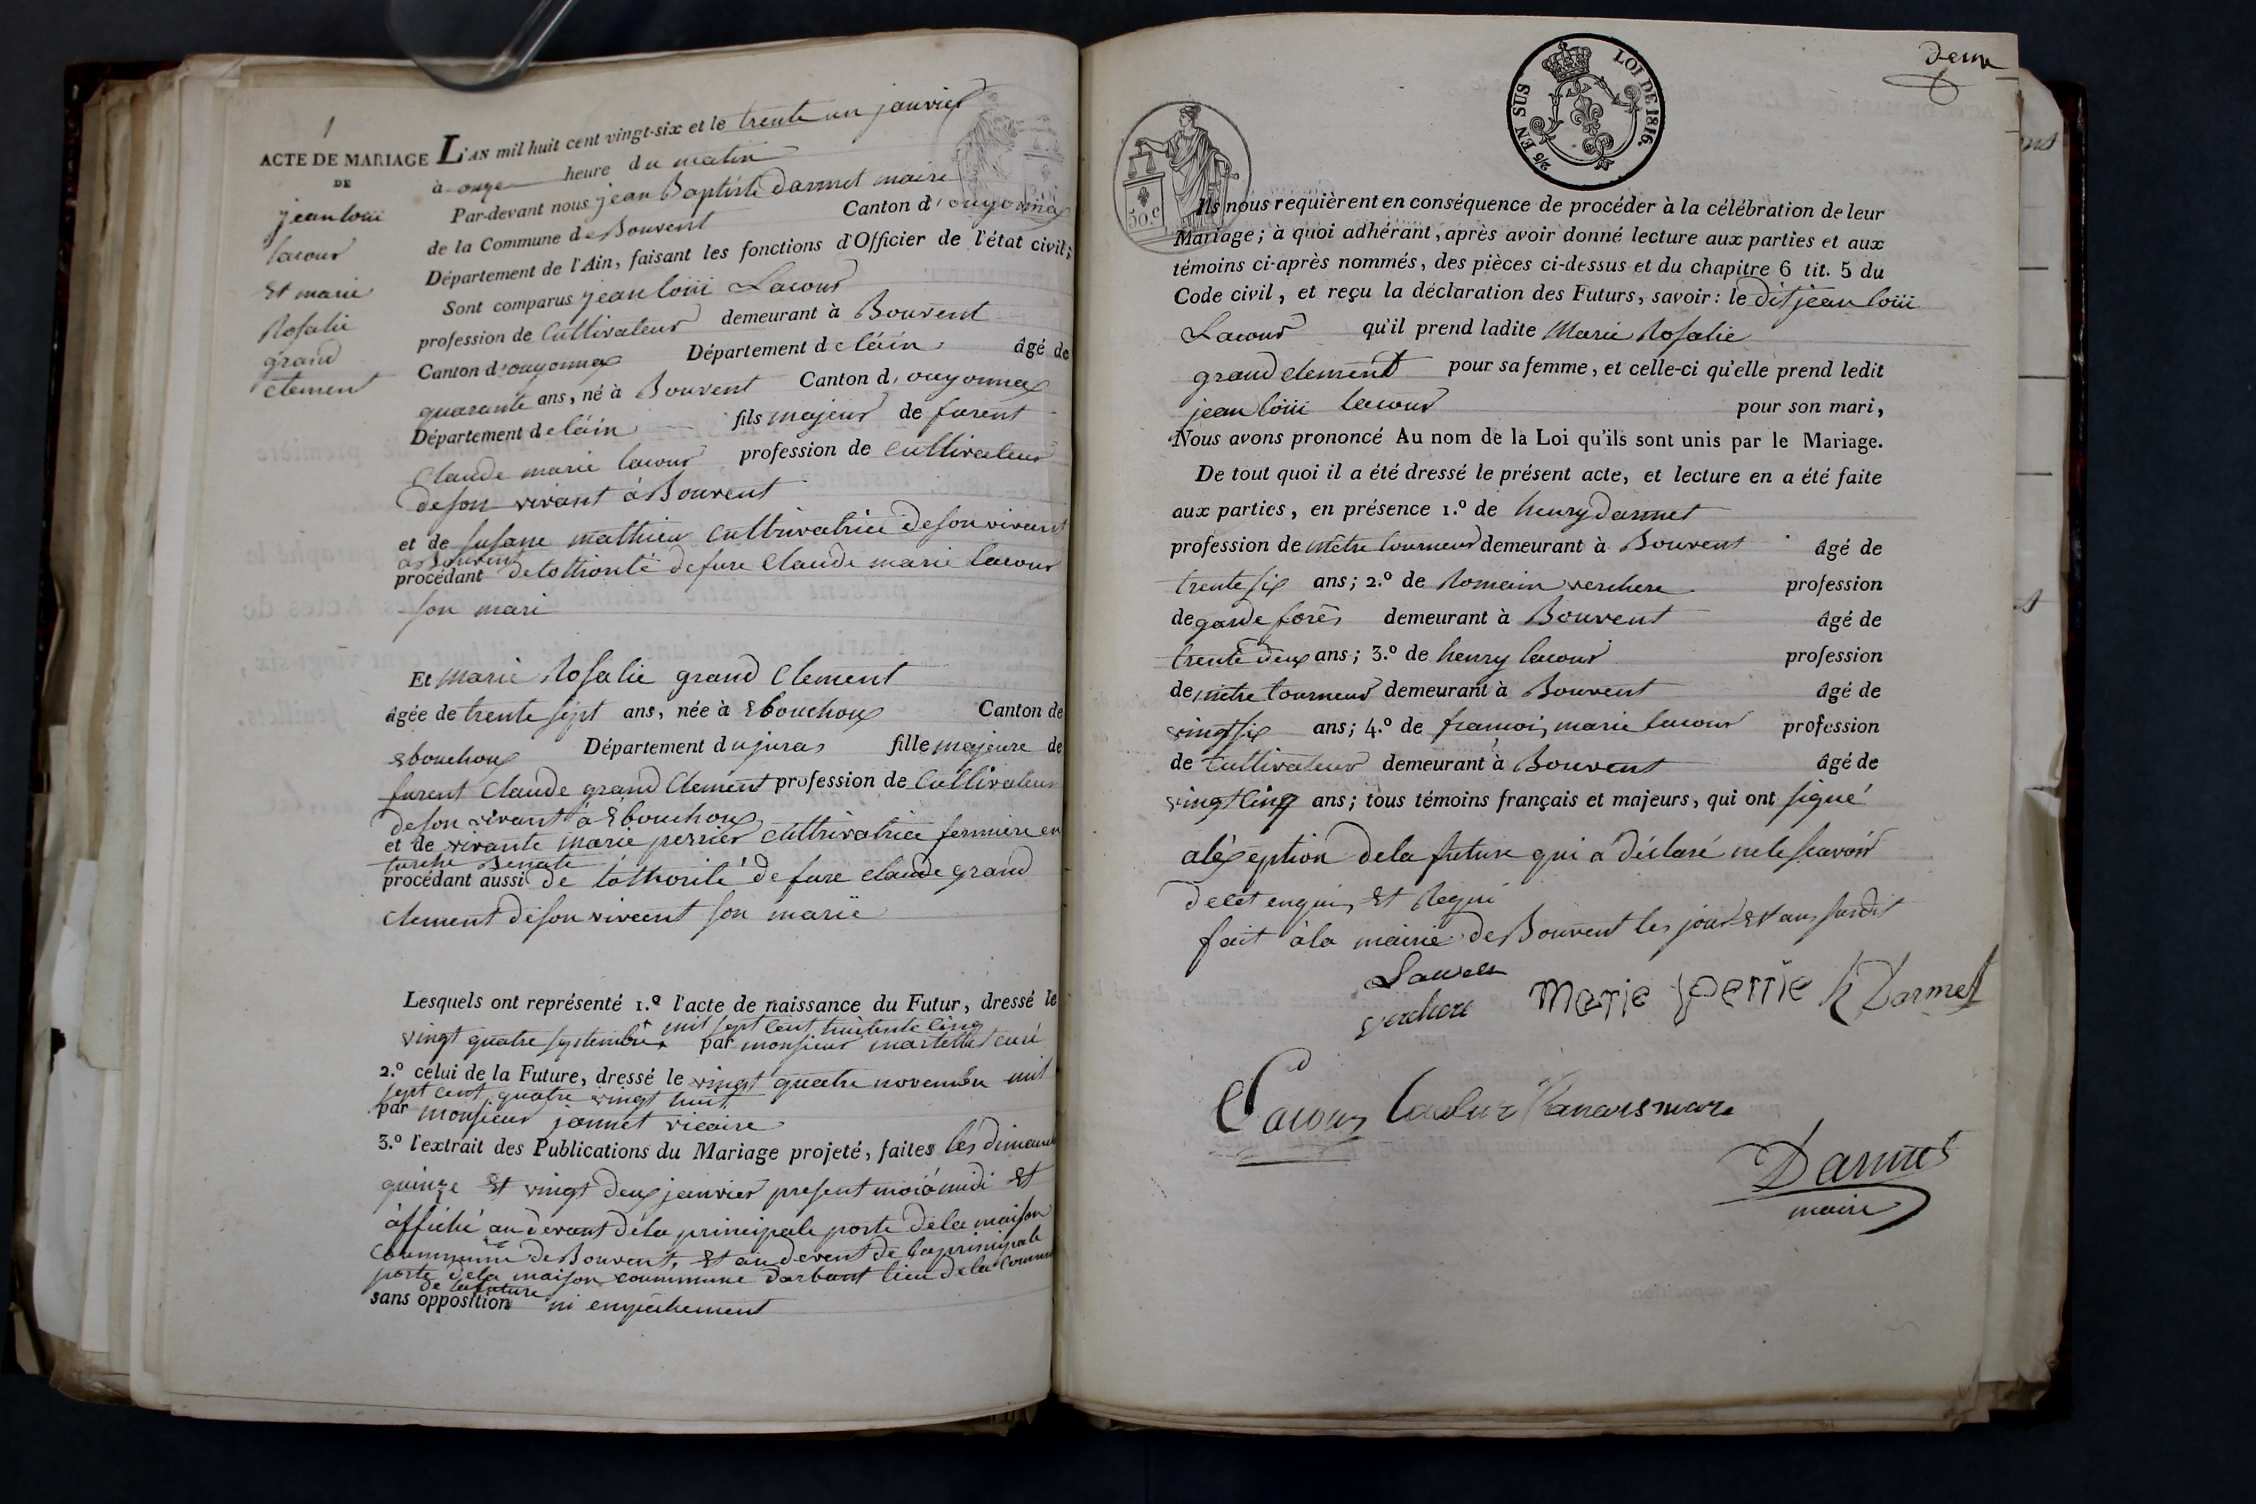 1
ACTE DE MARIAGE
DE
jean loüi
lacour
Et marie
Rosalie
grand
clement
L'AN mil huit cent vingt-six et le trente un janvier
à onze heure du matin
Par-devant nous jean Baptiste darmet maire
de la Commune de Bouvent Canton d'ouyonnax
Département de l'Ain, faisant les fonctions d'Officier de l'état civil;
Sont comparus jean loüi Lacour
profession de Cultivateur demeurant à Bouvent
Canton d'ouyonnax Département de láin âgé de
quarante ans, né à Bouvent Canton d'ouyonnax
Département de láin fils majeur de furent
Claude marie lacour profession de cultivateur
de son vivant à Bouvent
et de susane mathieu cultrivatrice de son vivant
à Bouvent
procédant de lothorité de fure Claude marie lacour
son mari
Et marie Rosalie grand Clement
âgée de trente sept ans, née à Ebouchoux Canton de
Ebouchoux Département du jura fille majeure de
furent Claude grand Clement profession de Cultivateur
de son vivant à Ebouchoux
et de vivante marie perrier cultrivatrice fermiere en
procédant aussi de lothorité de fure claude grand
clement de son viveent son marië
Lesquels ont représenté 1.º l'acte de naissance du Futur, dressé le
mil sept cent huitente cinq
vingt quatre septembre + par monsieur martellet curé
2.º celui de la Future, dressé le vingt quatre novembre mil
sept cent quatre vingt huit
par monsieur jannet vicaire
3.º l'extrait des Publications du Mariage projeté, faites les dimanch
quinze Et vingt deux janvier present mois à midi Et
àffiché au devant de la principale porte de la maison
commune de Bouvent, Et au devent de la principale
porte de la maison commune darbant lieu de la commun
de la future
sans opposition ni empechement
deux
2/5 EN SUS LOI DE 1816.
50 c
Ils nous requièrent en conséquence de procéder à la célébration de leur
Mariage; à quoi adhérant, après avoir donné lecture aux parties et aux
témoins ci-après nommés, des pièces ci-dessus et du chapitre 6 tit. 5 du
Code civil, et reçu la déclaration des Futurs, savoir: le dit jean loüi
Lacour qu'il prend ladite Marie Rosalie
grand clement pour sa femme, et celle-ci qu'elle prend ledit
jean loüi lacour pour son mari,
Nous avons prononcé Au nom de la Loi qu'ils sont unis par le Mariage.
De tout quoi il a été dressé le présent acte, et lecture en a été faite
aux parties, en présence 1.º de henry darmet
profession de mètre tourneur demeurant à Bouvent âgé de
trente six ans; 2.º de Romain verchere profession
de garde forês demeurant à Bouvent âgé de
trente deux ans; 3.º de henry lacour profession
de mètre tourneur demeurant à Bouvent âgé de
vingt six ans; 4.º de francois marie lacour profession
de cultivateur demeurant à Bouvent âgé de
vingt cinq ans; tous témoins français et majeurs, qui ont signé
aléxeption de la future qui a déclaré ne le scavoir
de cet enquis Et Requi
fait à la mairie de Bouvent les jour Et an susdit
verchere Marie perrie h Darmet
Lacour
Darmet
maire